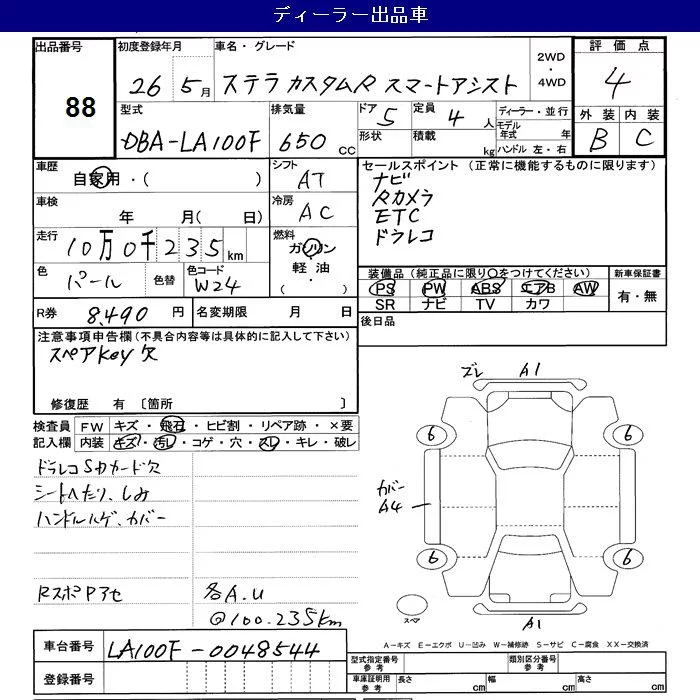 ディーラー出品車
出品番号 88
初度登録年月 26 5月
車名・グレード ステラ カスタムR スマートアシスト
2WD・4WD
評価点 4
外装 B 内装 C
型式 DBA-LA100F
排気量 650 CC
ドア 5
定員 4人
形状
積載 kg
ディーラー・並行
モデル年式 年
ハンドル 左・右
車歴 自家用・( )
シフト AT
車検 年 月( 日)
冷房 AC
走行 10万0千235km
燃料 ガソリン 軽油 ( ・ )
色 パール 色替
色コード W24
R券 8,490円
名変期限 月 日
セールスポイント(正常に機能するものに限ります)
ナビ
Rカメラ
ETC
ドラレコ
装備品(純正品に限り○をつけてください)
PS PW ABS エアB AW
SR ナビ TV カワ
新車保証書 有・無
後日品
注意事項申告欄(不具合内容等は具体的に記入して下さい)
スペアKey欠
修復歴 有 〔箇所 〕
検査員記入欄
FW キズ・飛石・ヒビ割・リペア跡・×要
内装 キズ・汚レ・コゲ・穴・スレ・キレ・破レ
ドラレコSDカード欠
シートヘたり、しみ
ハンドルハゲ、カバー
RスポPアセ
各A.U
@100.235km
ズレ A1
6 6
カバー
A4
6 6
スペア
A1
A-キズ E-エクボ U-凹み W-補修跡 S-サビ C-腐食 XX-交換済
車台番号 LA100F-0048544
登録番号
型式指定番号 参考
類別区分番号 参考
車庫証明用 参考 長さ cm 幅 cm 高さ cm